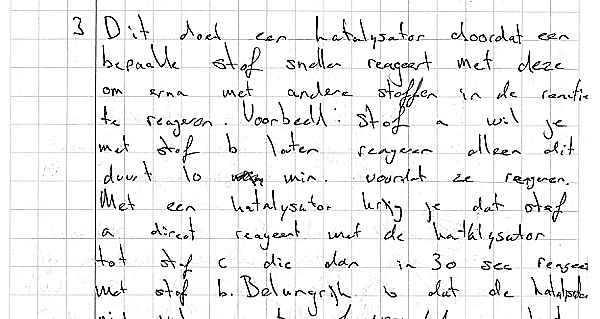 3 Dit doet een katalysator doordat een
bepaalde stof sneller reageert met deze
om erna met andere stoffen in de reactie
te reageren. Voorbeeld: stof a wil je
met stof b laten reageren alleen dit
duurt 10 min. voordat ze reageren.
Met een katalysator krijg je dat stof
a direct reageert met de katalysator
tot stof c die dan in 30 sec reageert
met stof b. Belangrijk is dat de katalysator